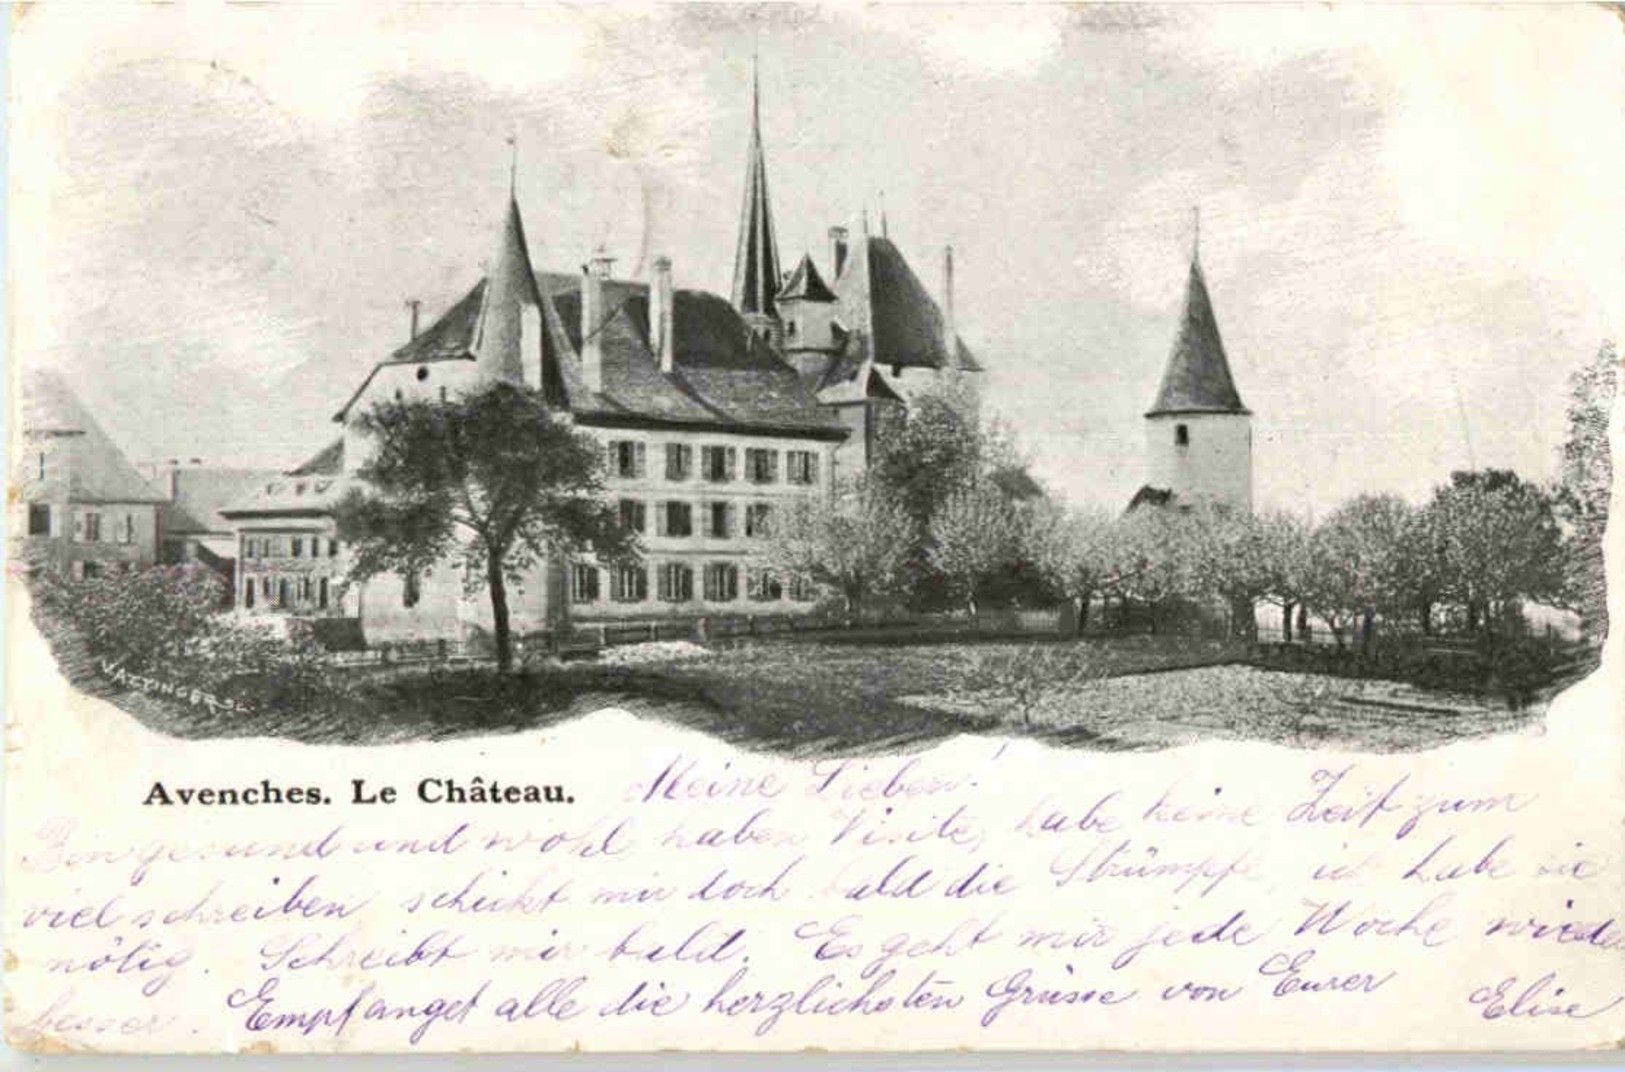 ATTINGER SC.
Avenches. Le Château.
Meine Lieben!
Bin gesund und wohl haben Visite, habe keine Zeit zum
viel schreiben, schickt mir doch bald die Strümpfe, ich habe sie
nötig. Schreibt mir bald. Es geht mir jede Woche wieder
besser. Empfanget alle die herzlichsten Grüsse von Eurer Elise